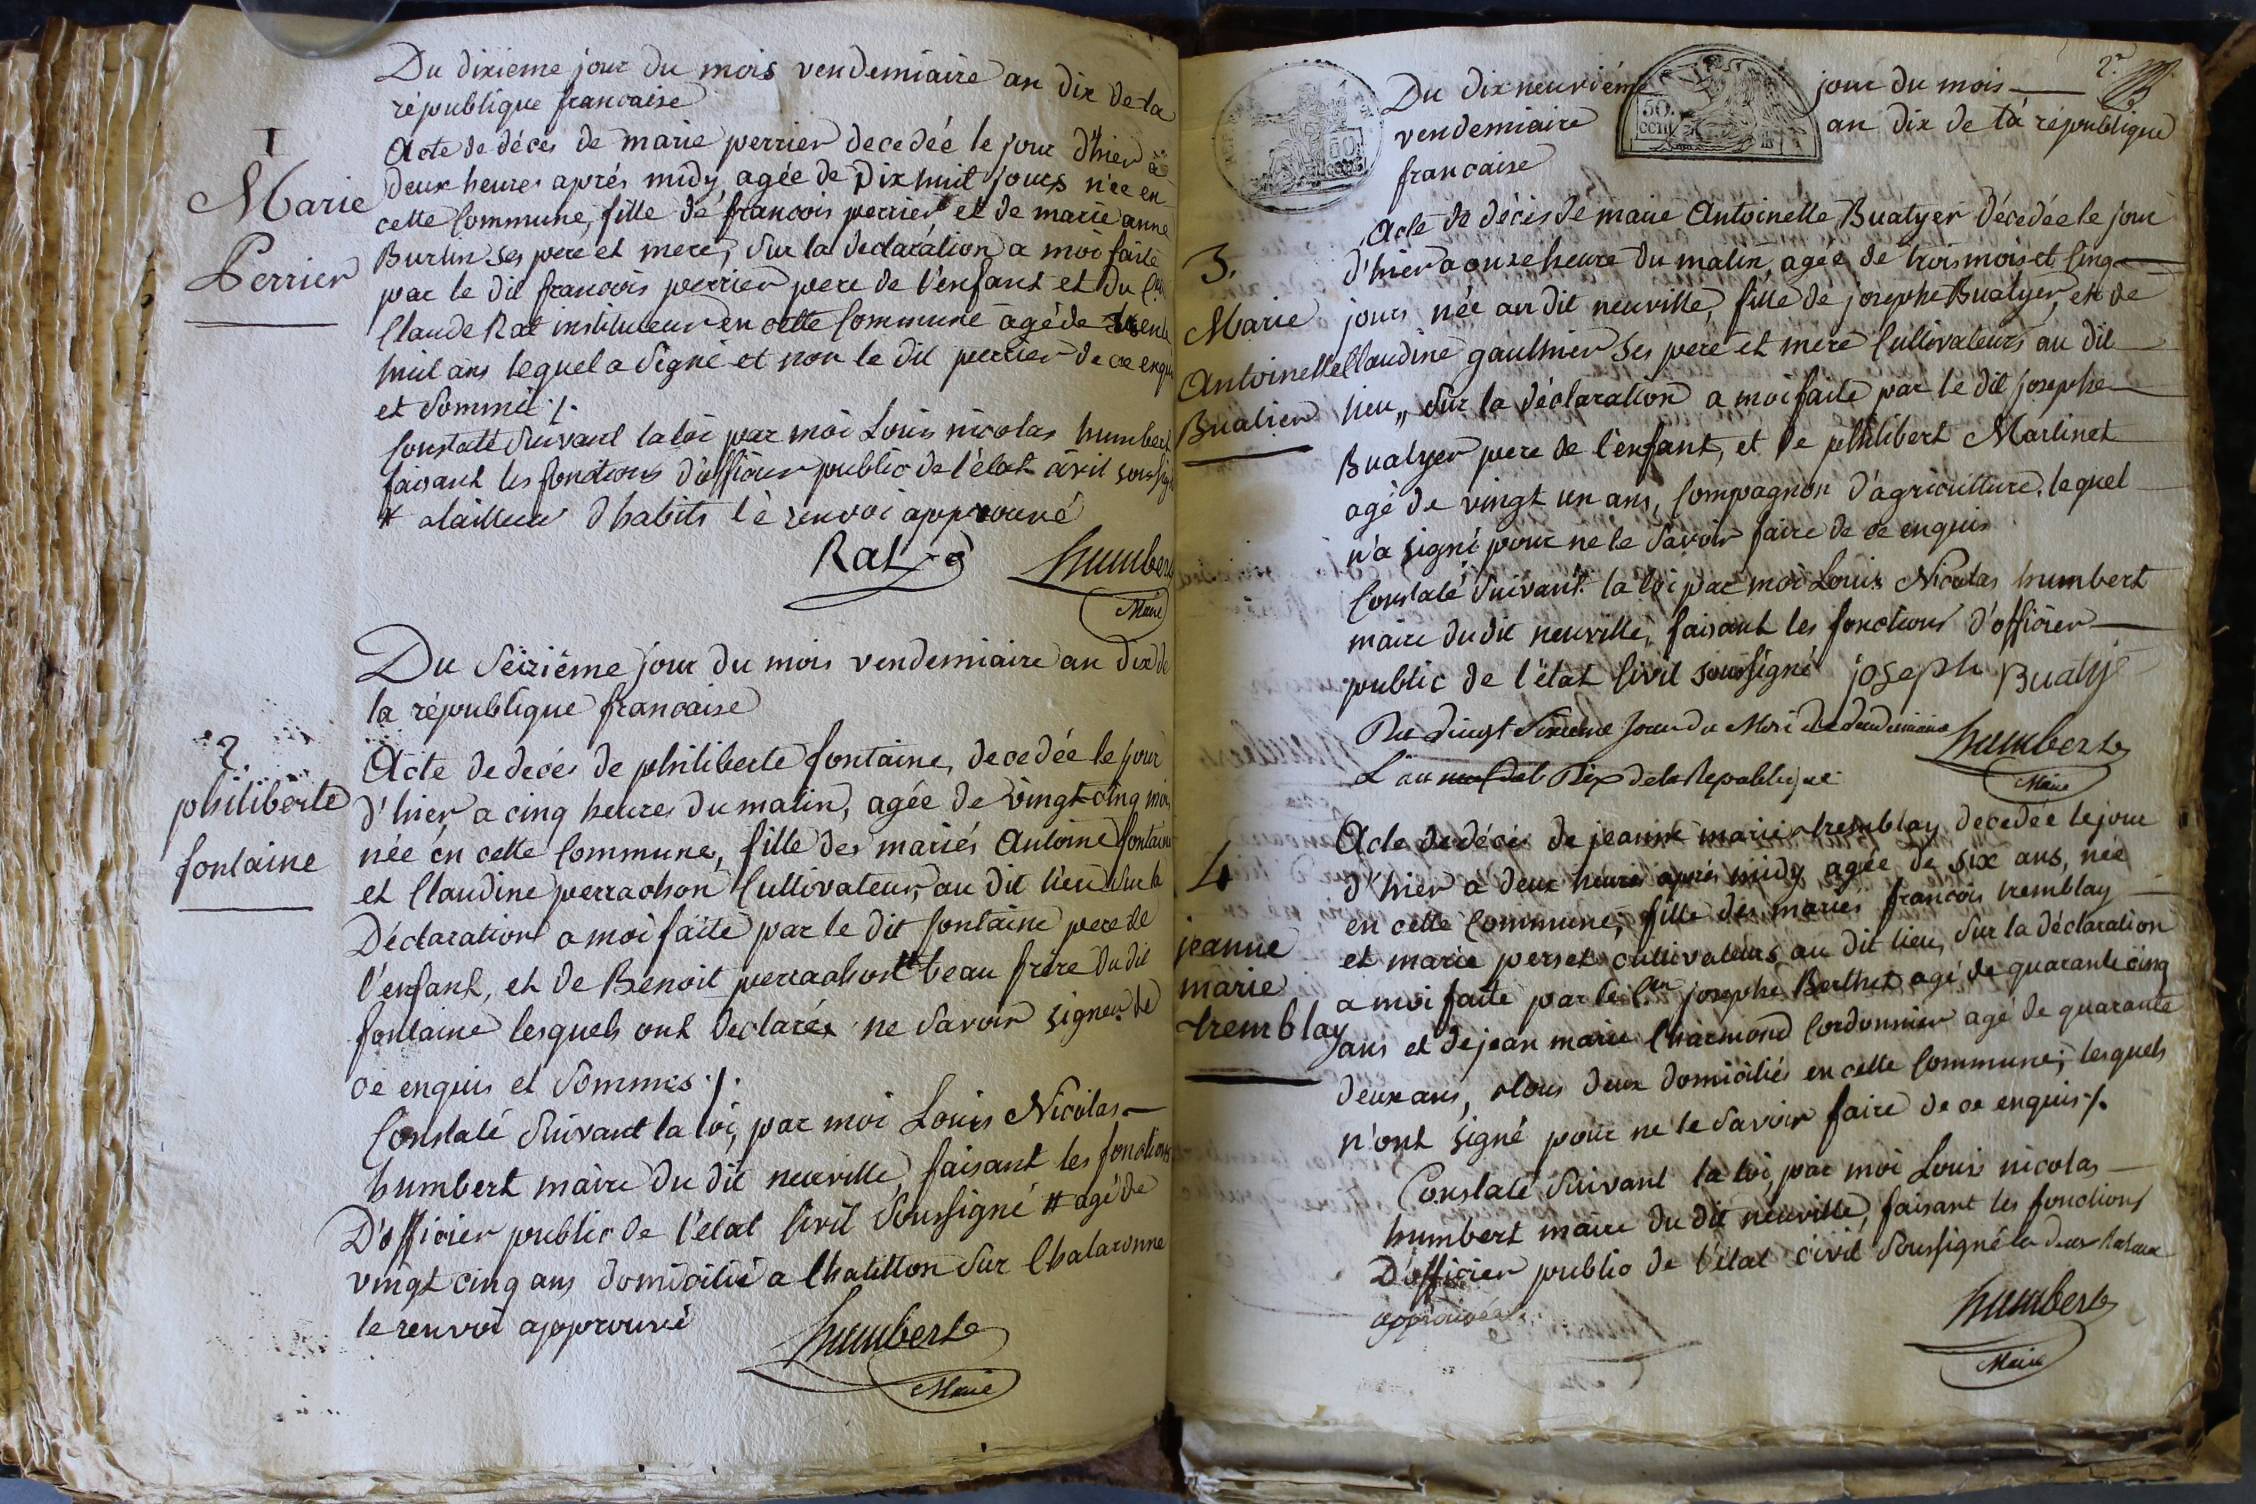 Du dixieme jour du mois vendemiaire an dix de la
république francaise
1
Marie
Perrier
Acte de décès de marie perrier decedée le jour d'hier a
deux heures aprés midy, agée de Dix huit jours née en
cette Commune, fille de francois perrier et de marie anne
Burlin ses pere et mere, sur la declaration a moi faite
par le dit francois perrier pere de l'enfant et du Cen
Claude Rat instituteur en cette Commune agé de trente
huit ans lequel a signé et non le dit perrier de ce enquis
et sommé ./.
Constaté suivant la loi par moi Louis nicolas humbert
faisant les fonctions d'officier public de l'état civil soussigné
# atailleur d'habits le renvoi approuvé
Rat
humbert
Maire
Du seiziéme jour du mois vendemiaire an dix de
la république francaise
2.
philiberte
fontaine
Acte de decés de philiberte fontaine, decedée le jour
d'hier a cinq heures du matin, agée de vingt cinq mois
née en cette Commune, fille des mariés Antoine fontaine
et Claudine perrachon Cultivateurs, au dit lieu sur la
Déclaration a moi faite par le dit fontaine pere de
l'enfant, et de Benoit perrachon # beau frere du dit
fontaine lesquels ont declarés ne savoir signer de
ce enquis et sommés ./.
Constaté suivant la loi, par moi Louis Nicolas
humbert maire du dit neuville, faisant les fonctions
D'officier public de l'état Civil soussigné # agé de
vingt cinq ans domicilié a Chatillon sur Chalaronne
le renvoi approuvé
humbert
Maire
2e
50. cen
Du dix neuviéme jour du mois
vendemiaire an dix de la république
francaise
3.
Marie
Antoinette
Buatier
Acte de décès de marie Antoinette Buatyer décedée le jour
d'hier a onze heure du matin, agée de trois mois et Cinq
jours née au dit neuville, fille de josephe Buatyer, et de
Claudine gaulthier ses pere et mere Cultivateurs au dit
lieu,, sur la déclaration a moi faite par le dit josephe
Buatyer pere de l'enfant, et de philibert Martinet
agé de vingt un ans, Compagnon d'agriculture, lequel
n'a signé pour ne le savoir faire de ce enquis
Constaté suivant la loi par moi Louis Nicolas humbert
maire du dit neuville, faisant les fonctions d'officier
public de l'état Civil soussigné joseph Buatyé
humbert
Maire
Du vingt Sixieme Jour du Mois de vendemiaire
L'an Dix de la Republique
4
jeanne
marie
tremblay
Acte de décès de jeanne marie tremblay decedée le jour
d'hier a deux heures aprés midy agée de six ans, née
en cette Commune, fille des mariés francois tremblay
et marie perset cultivateurs au dit lieu, sur la déclaration
a moi faite par le Cen josephe Berthet agé de quarante cinq
ans et de jean marie Charmond Cordonnier agé de quarante
deux ans, tous deux domiciliés en cette Commune; lesquels
n'ont signé pour ne le savoir faire de ce enquis ./.
Constaté suivant la loi, par moi Louis nicolas
humbert maire du dit neuville, faisant les fonctions
D'officier public de l'état civil soussigné la deux
approuvée
humbert
Maire